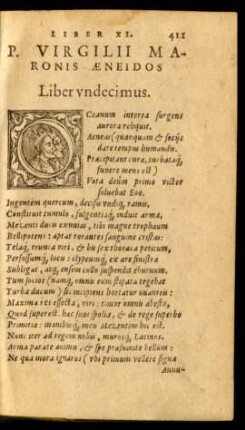 LIBER XI. 411
P. VIRGILII MA-
RONIS ÆNEIDOS
Liber vndecimus.
Ceanum interea surgens
aurora reliquit.
Aeneas (quanquam & socijs
dare tempus humandis.
Præcipitant curæ, turbataq́;
funere mens est)
Vota deûm primo victor
soluebat Eoo.
Ingentem quercum, decisis vndiq; ramis,
Constituit tumulo, fulgentiaq́; induit arma,
Mezenti ducis exuuias, tibi magne trophæum
Bellipotens: aptat rorantes sanguine cristas:
Telaq́; trunca viri, & bis sex thoraca petitum,
Perfossumq́; locis: clypeumq́; ex ære sinistra
Subligat, atq; ensem collo suspendit eburnum.
Tum socios (namq; omnis eum stipata tegebat
Turba ducum) sic incipiens hortatur ouanteis:
Maxima res effecta, viri: timor omnis abesto,
Quod superest. hæc sunt spolia, & de rege superbo
Primitiæ: manibusq́; meis Mezentius hic est.
Nunc iter ad regem nobis, murosq́; Latinos.
Arma parate animis, & spe præsumite bellum:
Ne qua mora ignaros (vbi primum vellere signa
Annu-